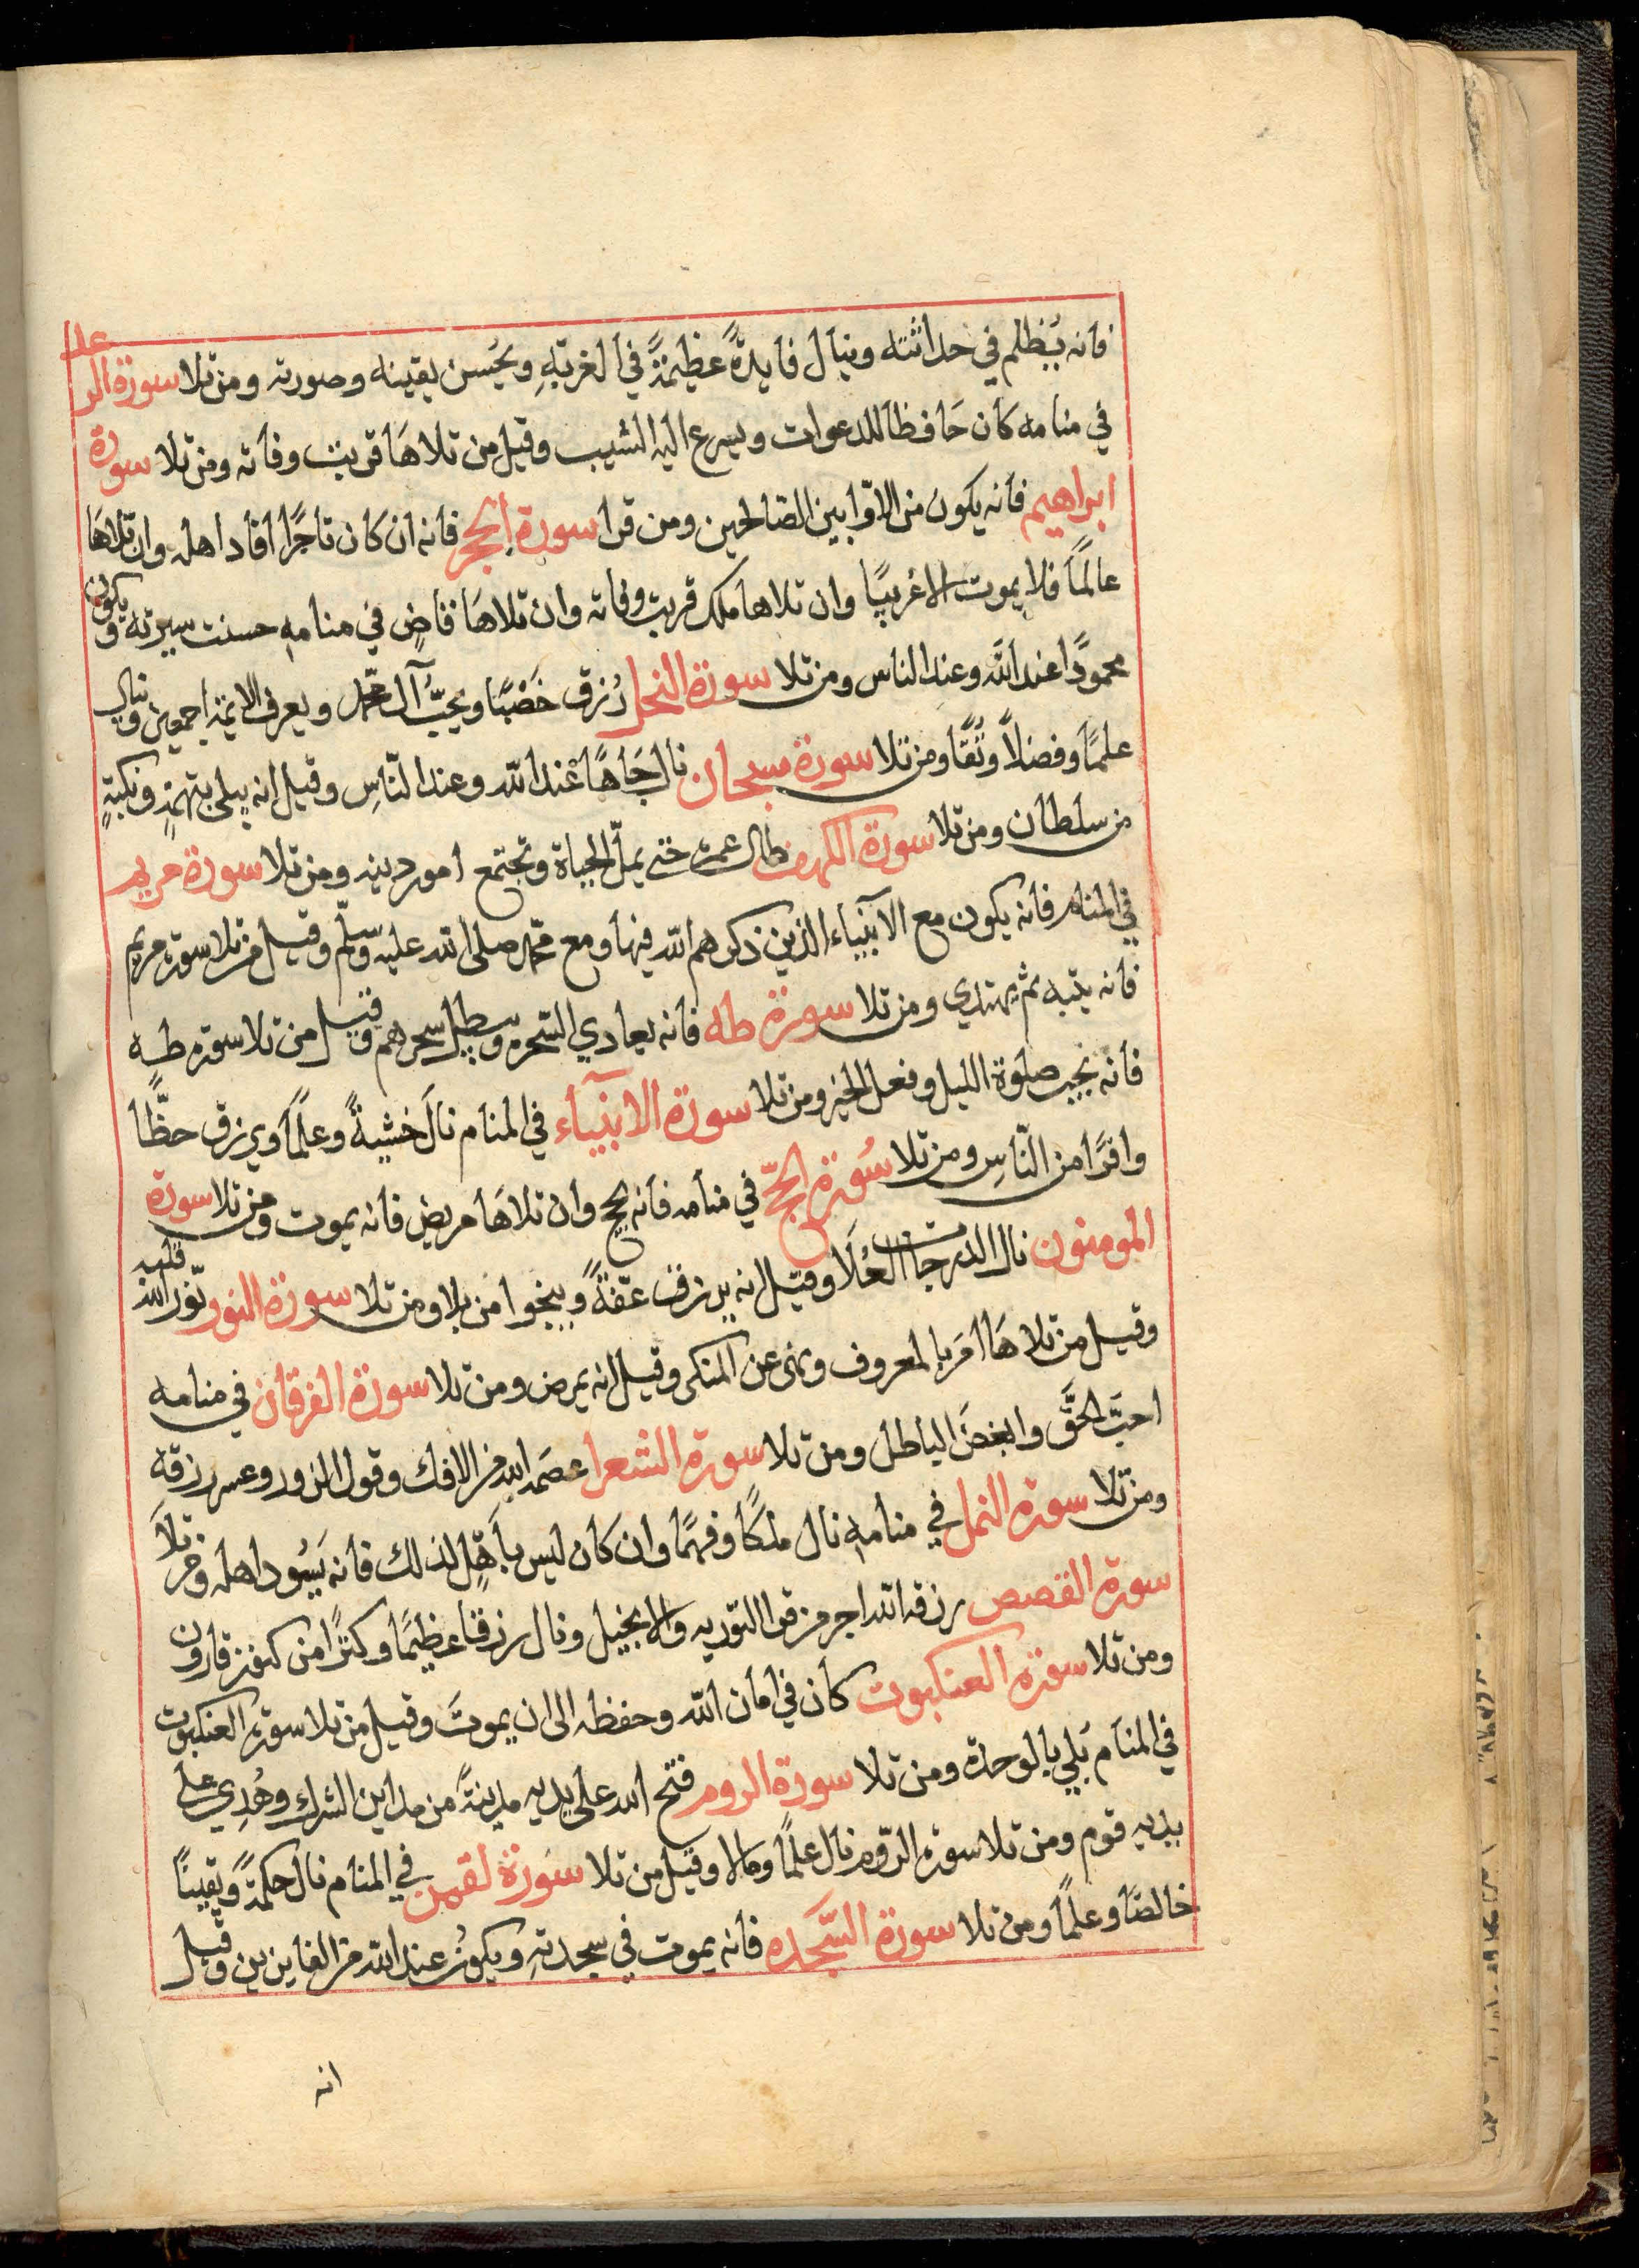 فانه يُظلم في حداثته وينال فايدةً عظيمةً في الغربةِ ويحُسن يقينه وصورته ومن تلا سورة الرعد
في منامه كان حَافظا للدعوات ويسرع اليه الشيب وقيل من تلاهَا قربت وفاته ومن تلا سورة
ابراهيم فانه يكون من الاوّابين الصّالحين ومن قرا سورة الحجر فانه ان كان تاجرًا افاد اهله وان تلاهَا
عالمًا فلا يموت الا غريبًا وان تلاها ملك قربت وفاته وان تلاهَا قاضٍ في منامهِ حسنت سيرته ويكون
محمودًا عند الله وعند الناس ومن تلا سورة النحل رُزق خَصْبًا ويحبُّ آل محمّد ويعرف الايمّة اجمعين وينال
علمًا وفضلاً وتُقًا ومن تلا سورة سبحان نال جَاهًا عَند الله وعند النّاسِ وقيل انه يبلى بتهمةٍ ونكبةٍ
من سلطان ومن تلا سورة الكهف طال عمره حتى يملّ الحياة وتجتمع امور دينه ومن تلا سورة مريم
في المنام فانه يكون مع الأنبياء الذين ذكرهم الله فيها ومع محمّد صلى الله عليه وسلّم وقيل من تلا سورة مريم
فانه يتيه ثم يهتدي ومن تلا سورة طه فانه يعادي السّحره ويبطل سحرهم وقيل من تلا سورة طه
فانه يحب صلوة الليل وفعل الخير ومن تلا سورة الانبيآء في المنام نالَ خشيةً وعلمًا ويرزق حظًّا
وافرًا من النّاسِ ومن تلا سُورة الحجّ في منامه فانه يحج وان تلاهَا مريض فانه يموت ومن تلا سورة
المومنون نال الدرجات العُلَا وقيل انه يرزق عفّةً وينجوا من بلا ومن تلا سورة النور نوّر الله قلبه
وقيل من تلاهَا امَر بالمعروف ونهى عن المنكر وقيل انه يمرض ومن تلا سورة الفرقان في منامه
احبَّ الحقَّ وابغضَ الباطل ومن تلا سورة الشعرا عصَمه الله من الافك وقول الزور وعسر رزقه
ومن تلا سورة النمل في منامهِ نال ملكًا وفهمًا وان كان ليس بأهلٍ لذلك فانه يَسُود اهله ومن تلاَ
سورة القصص رزقه الله اجر من قرا التوريه والانجيل ونال رزقا عظيمًا وكنزًا من كنوز قارون
ومن تلا سورة العنكبوت كان في امان الله وحفظه الى ان يموتَ وقيل من تلا سورة العنكبوت
في المنام بَلي بالوحدة ومن تلا سورة الروم فتح الله على يديه مدينةً من مداين الشرك وهُدِي على
يديه قوم ومن تلا سورة الرّوم نال علمًا ومالا وقيل من تلا سُورة لقمن في المنام نال حكمةً ويقينًا
خالصًا وعلمًا ومن تلا سورة السَّجده فانه يموت في سجدتهِ ويكونُ عند الله من الفايزين وقيل
انه